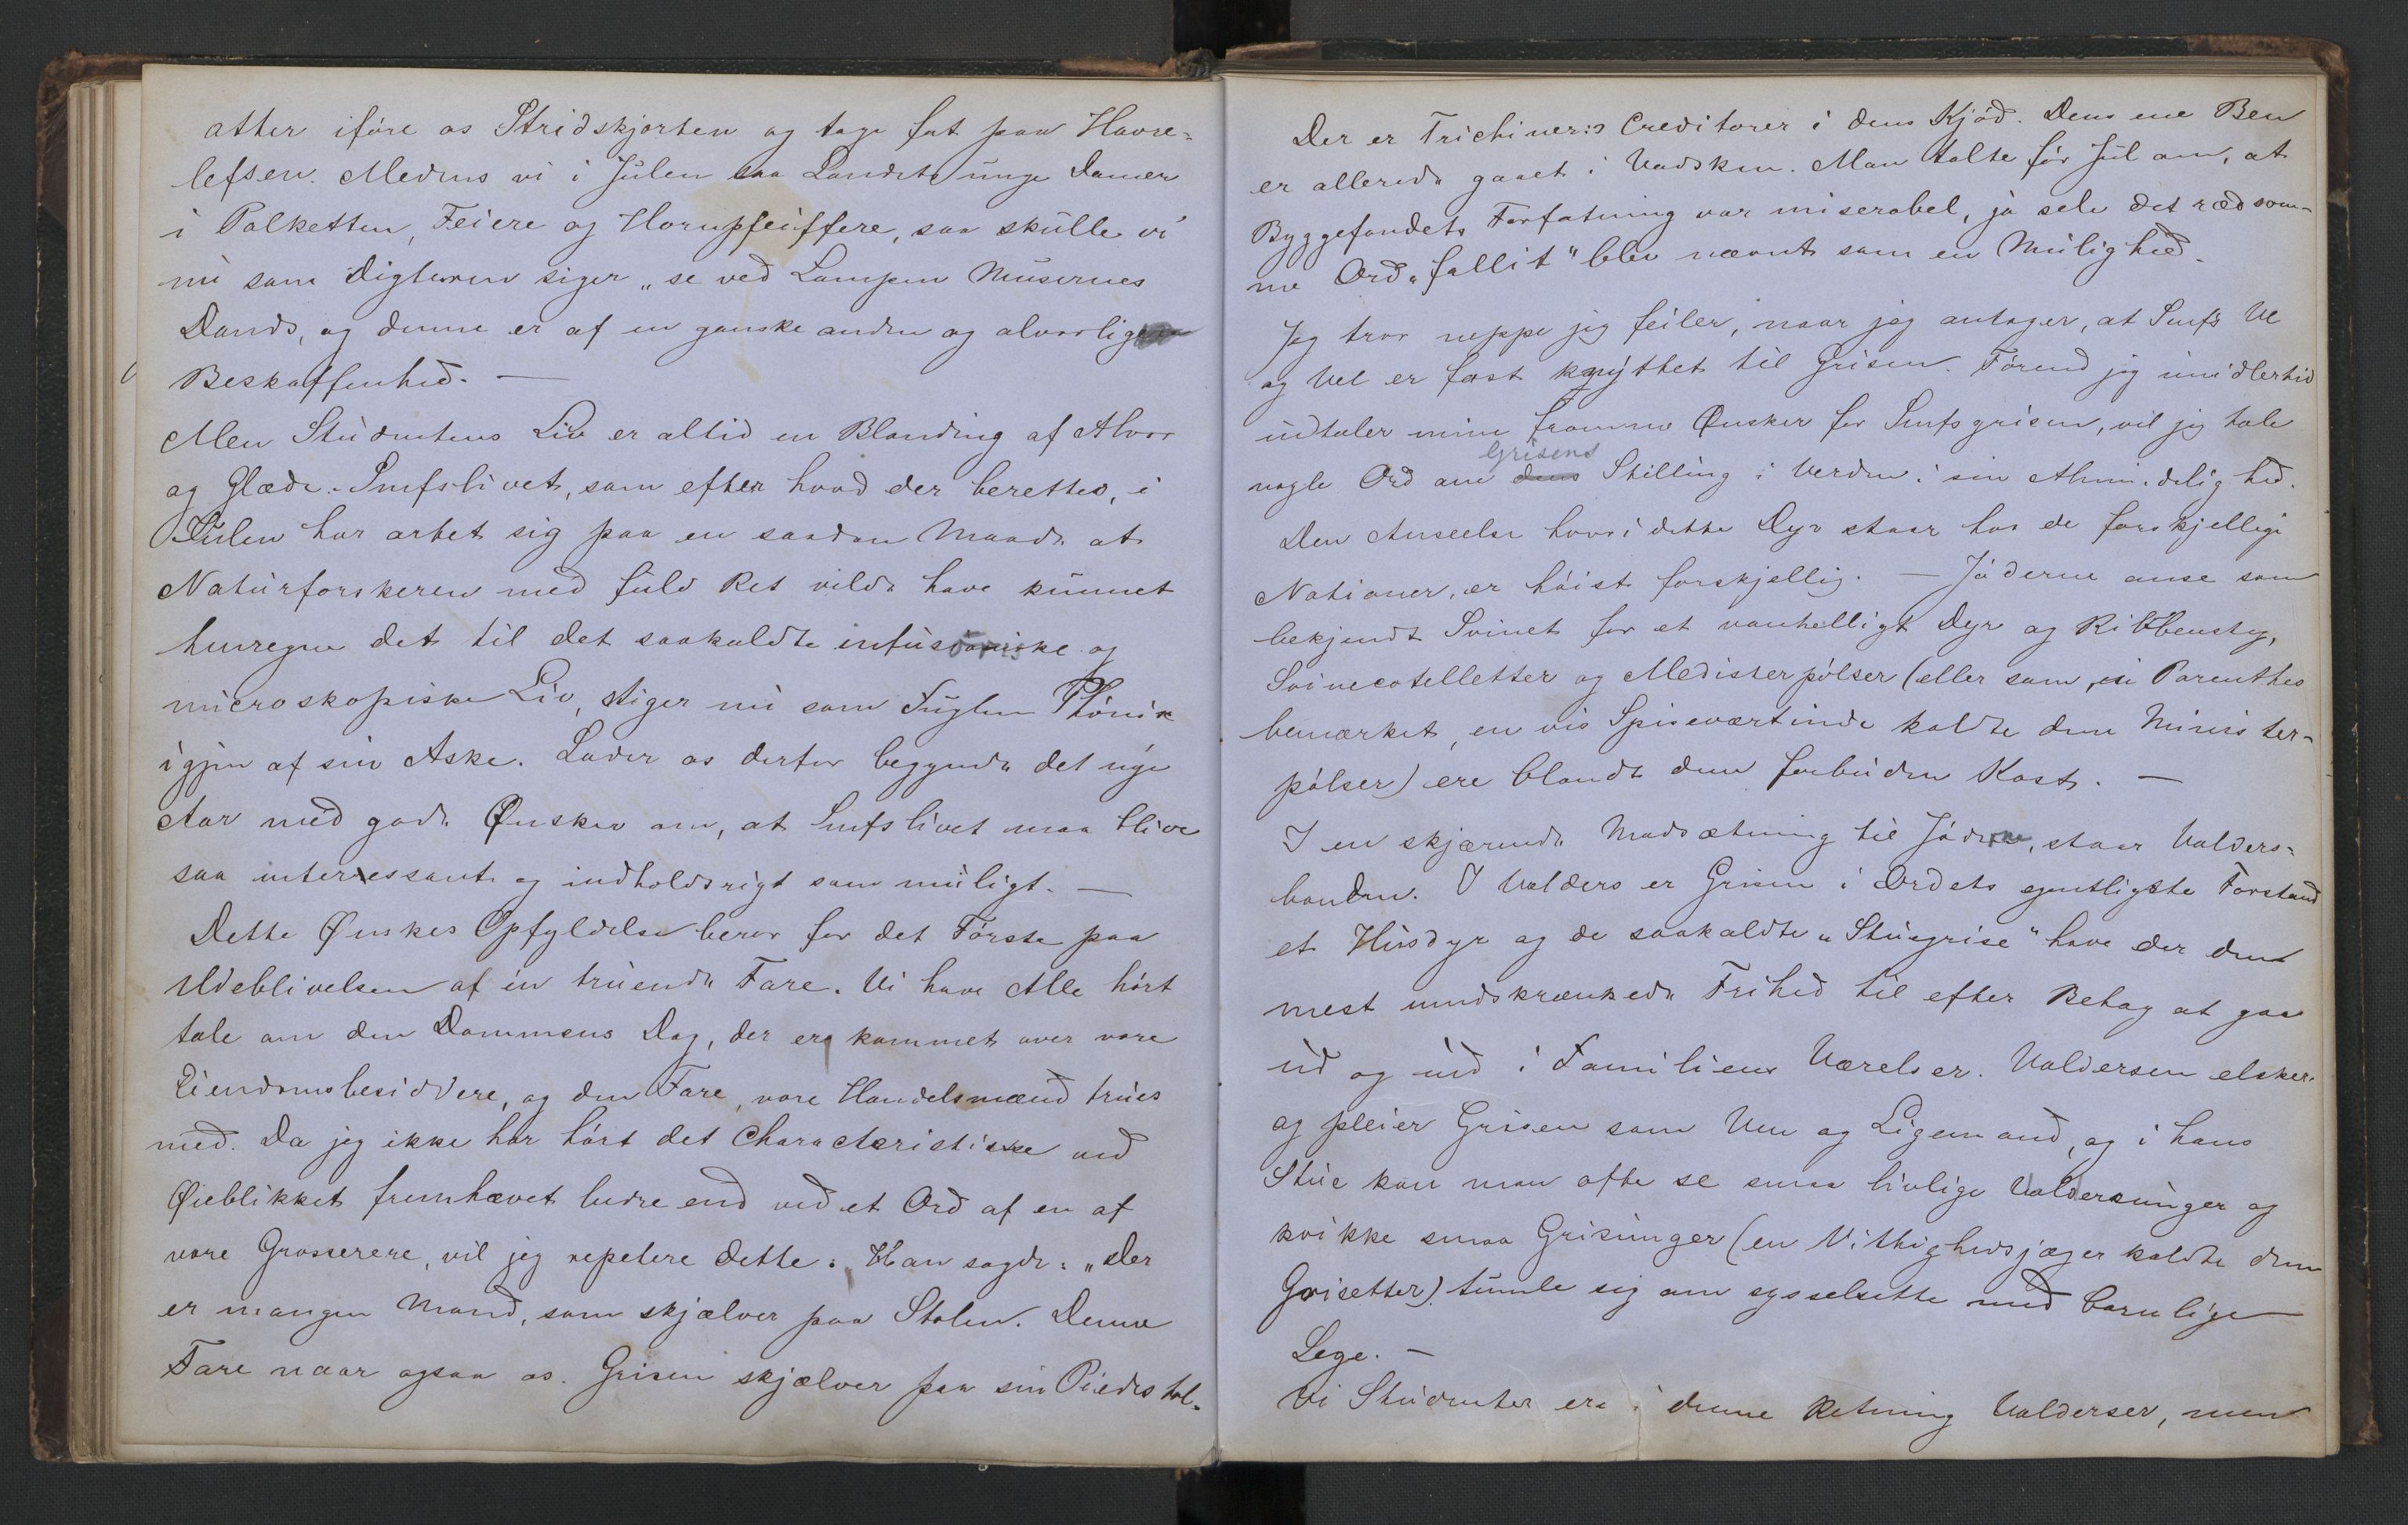 atter iføre os Stridskjorten og tage fat paa Havre-
lefsen. Medens vi i Julen saa Landets unge Damer
i Polketten, Feiere og Hornpfeiffere, saa skulle vi
nu som Digteren siger „se ved Lampen Musernes
Dands, og denne er af en ganske anden og alvorlig
Beskaffenhed. —
Men Studentens Liv er altid en Blanding af Alvor
og Glæde. Smfslivet, som efter hvad der berettes, i
Julen har artet sig paa en saadan Maade at
Naturforskeren med fuld Ret vilde have kunnet
henregne det til det saakaldte infusoriske og
microskopiske Liv, stiger nu som Fuglen Phønix
igjen af sin Aske. Lader os derfor begynde det nye
Aar med gode Ønsker om, at Smfslivet maa blive
saa interessant og indholdsrigt som muligt. —
Dette Ønskes Opfyldelse beror for det Første paa
Udeblivelsen af en truende Fare. Vi have Alle hørt
tale om den Dommens Dag, der er kommet over vore
Eiendomsbesiddere, og den Fare, vore Handelsmænd trues
med. Da jeg ikke har hørt det Characteristiske ved
Øieblikket fremhævet bedre end ved et Ord af en af
vore Grosserere, vil jeg repetere dette. Han sagde: „Der
er mangen Mand, som skjælver paa Stolen. Denne
Fare naar ogsaa os. Grisen skjælver paa sin Piedestal.
Der er Trichiner: Creditorer i dens Kjød. Dens ene Ben
er allerede gaaet i Vadsken. Man talte før Jul om, at
Byggefondets Forfatning var miserabel, ja selv det rædsom-
me Ord „fallit" blev nævnt som en Mulighed.
Jeg tror neppe jeg feiler, naar jeg antager, at Smfs Ve
og Vel er fast knyttet til Grisen. Førend jeg imidlertid
udtaler mine fromme Ønsker for Smfsgrisen, vil jeg tale
nogle Ord om dens Grisens Stilling i Verden i sin Almindelighed.
Den Anseelse hvori dette Dyr staar hos de forskjellige
Nationer, er høist forskjellig. — Jøderne anse som
bekjendt Svinet for et vanhelligt Dyr og Ribbensteg,
Svinecotelletter og Medisterpølser (eller som, en Parenthes
bemærket, en vis Spiseværtinde kaldte dem Minister-
pølser) ere blandt dem forbuden Kost. —
I en skjærende Modsætning til Jøderne, staar Valders-
bonden. I Valders er Grisen i Ordets egentligste Forstand
et Husdyr og de saakaldte „Stuegrise" have der den
mest uindskrænkede Frihed til efter Behag at gaa
ud og ind i Familiens Værelser. Valdersen elsker
og pleier Grisen som Ven og Ligemand, og i hans
Stue kan man ofte se smaa livlige Valdersunger og
kvikke smaa Grisunger (en Vittighedsjæger kaldte dem
Grisetter) tumle sig om sysselsatte med barnlige
Lege. —
Vi Studenter ere i denne Retning Valderser, men